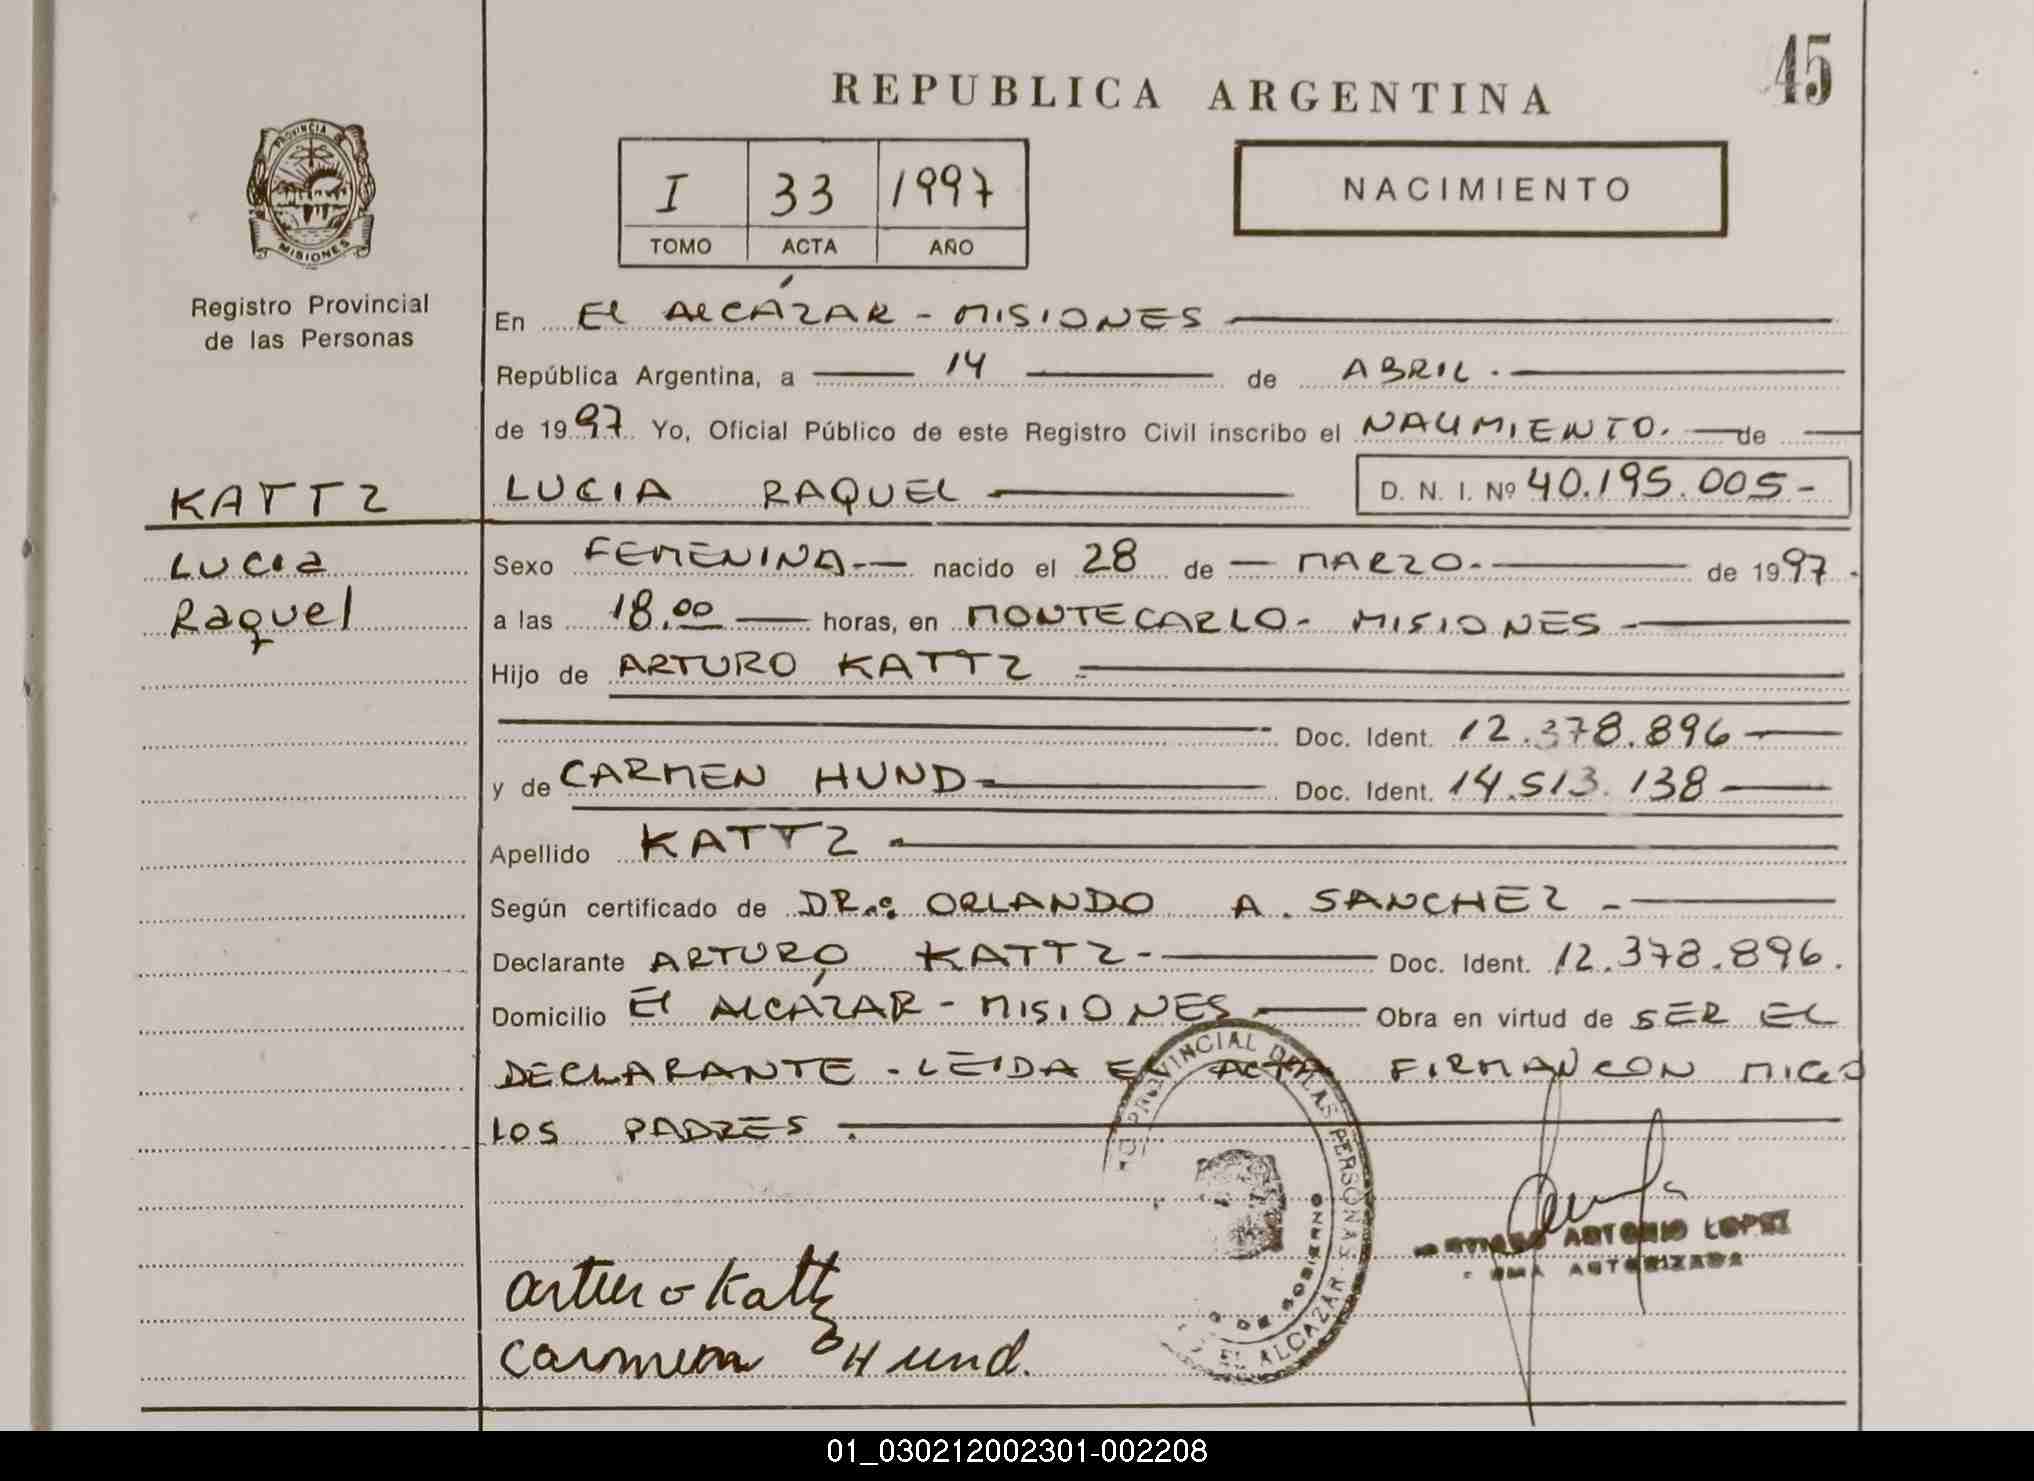 45
REPUBLICA ARGENTINA
PROVINCIA DE
MISIONES
I 33 1997
TOMO ACTA AÑO
NACIMIENTO
Registro Provincial
de las Personas
En El AlCÁZAR - MISIONES
República Argentina, a 14 de ABRIL.
de 1997 Yo, Oficial Público de este Registro Civil inscribo el NACIMIENTO. de
KATTZ
LUCIA RAQUEL D. N. I. Nº 40.195.005-
LUCIa
Raquel
Sexo FEMENINA.- nacido el 28 de MARZO.- de 1997.
a las 18.00 horas, en MONTECARLO- MISIONES-
Hijo de ARTURO KATTZ
Doc. Ident. 12.378.896
y de CARMEN HUND Doc. Ident. 14.513.138
Apellido KATTZ
Según certificado de DR.: ORLANDO A. SANCHEZ -
Declarante ARTURO KATTZ- Doc. Ident. 12.378.896.
Domicilio El ALCÁZAR - MISIONES Obra en virtud de SER EL
DECLARANTE - LEIDA EL ACTA FIRMAN CON MIGO
LOS PADRES.
PROVINCIAL DE LAS PERSONAS
EL ALCAZAR
ANTONIO LOPEZ
AUTORIZADA
arturo Kattz
Carmen Hund.
01_030212002301-002208